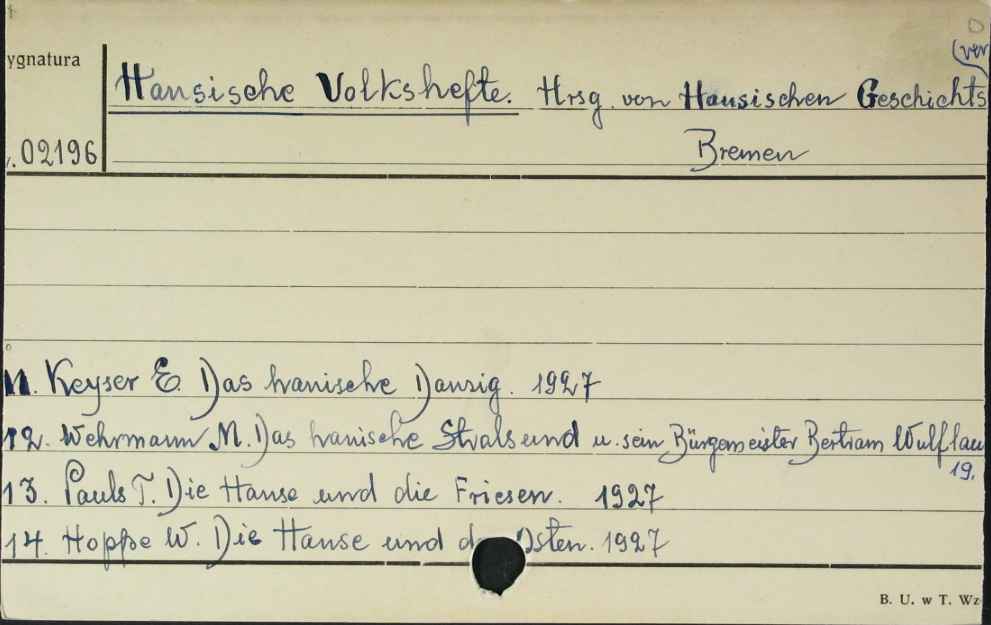 ygnatura
(ver
Hansische Volkshefte. Hrsg. von Hansischen Geschichts
.02196
Bremen
11. Keyser E. Das hanische Danzig. 1927
12. Wehrmann M. Das hanische Stralsund u. sein Bürgemeister Bertram Wulflau
19.
13. Pauls T. Die Hanse und die Friesen. 1927
14. Hoppe W. Die Hanse und d Osten. 1927
B. U. w T. Wz